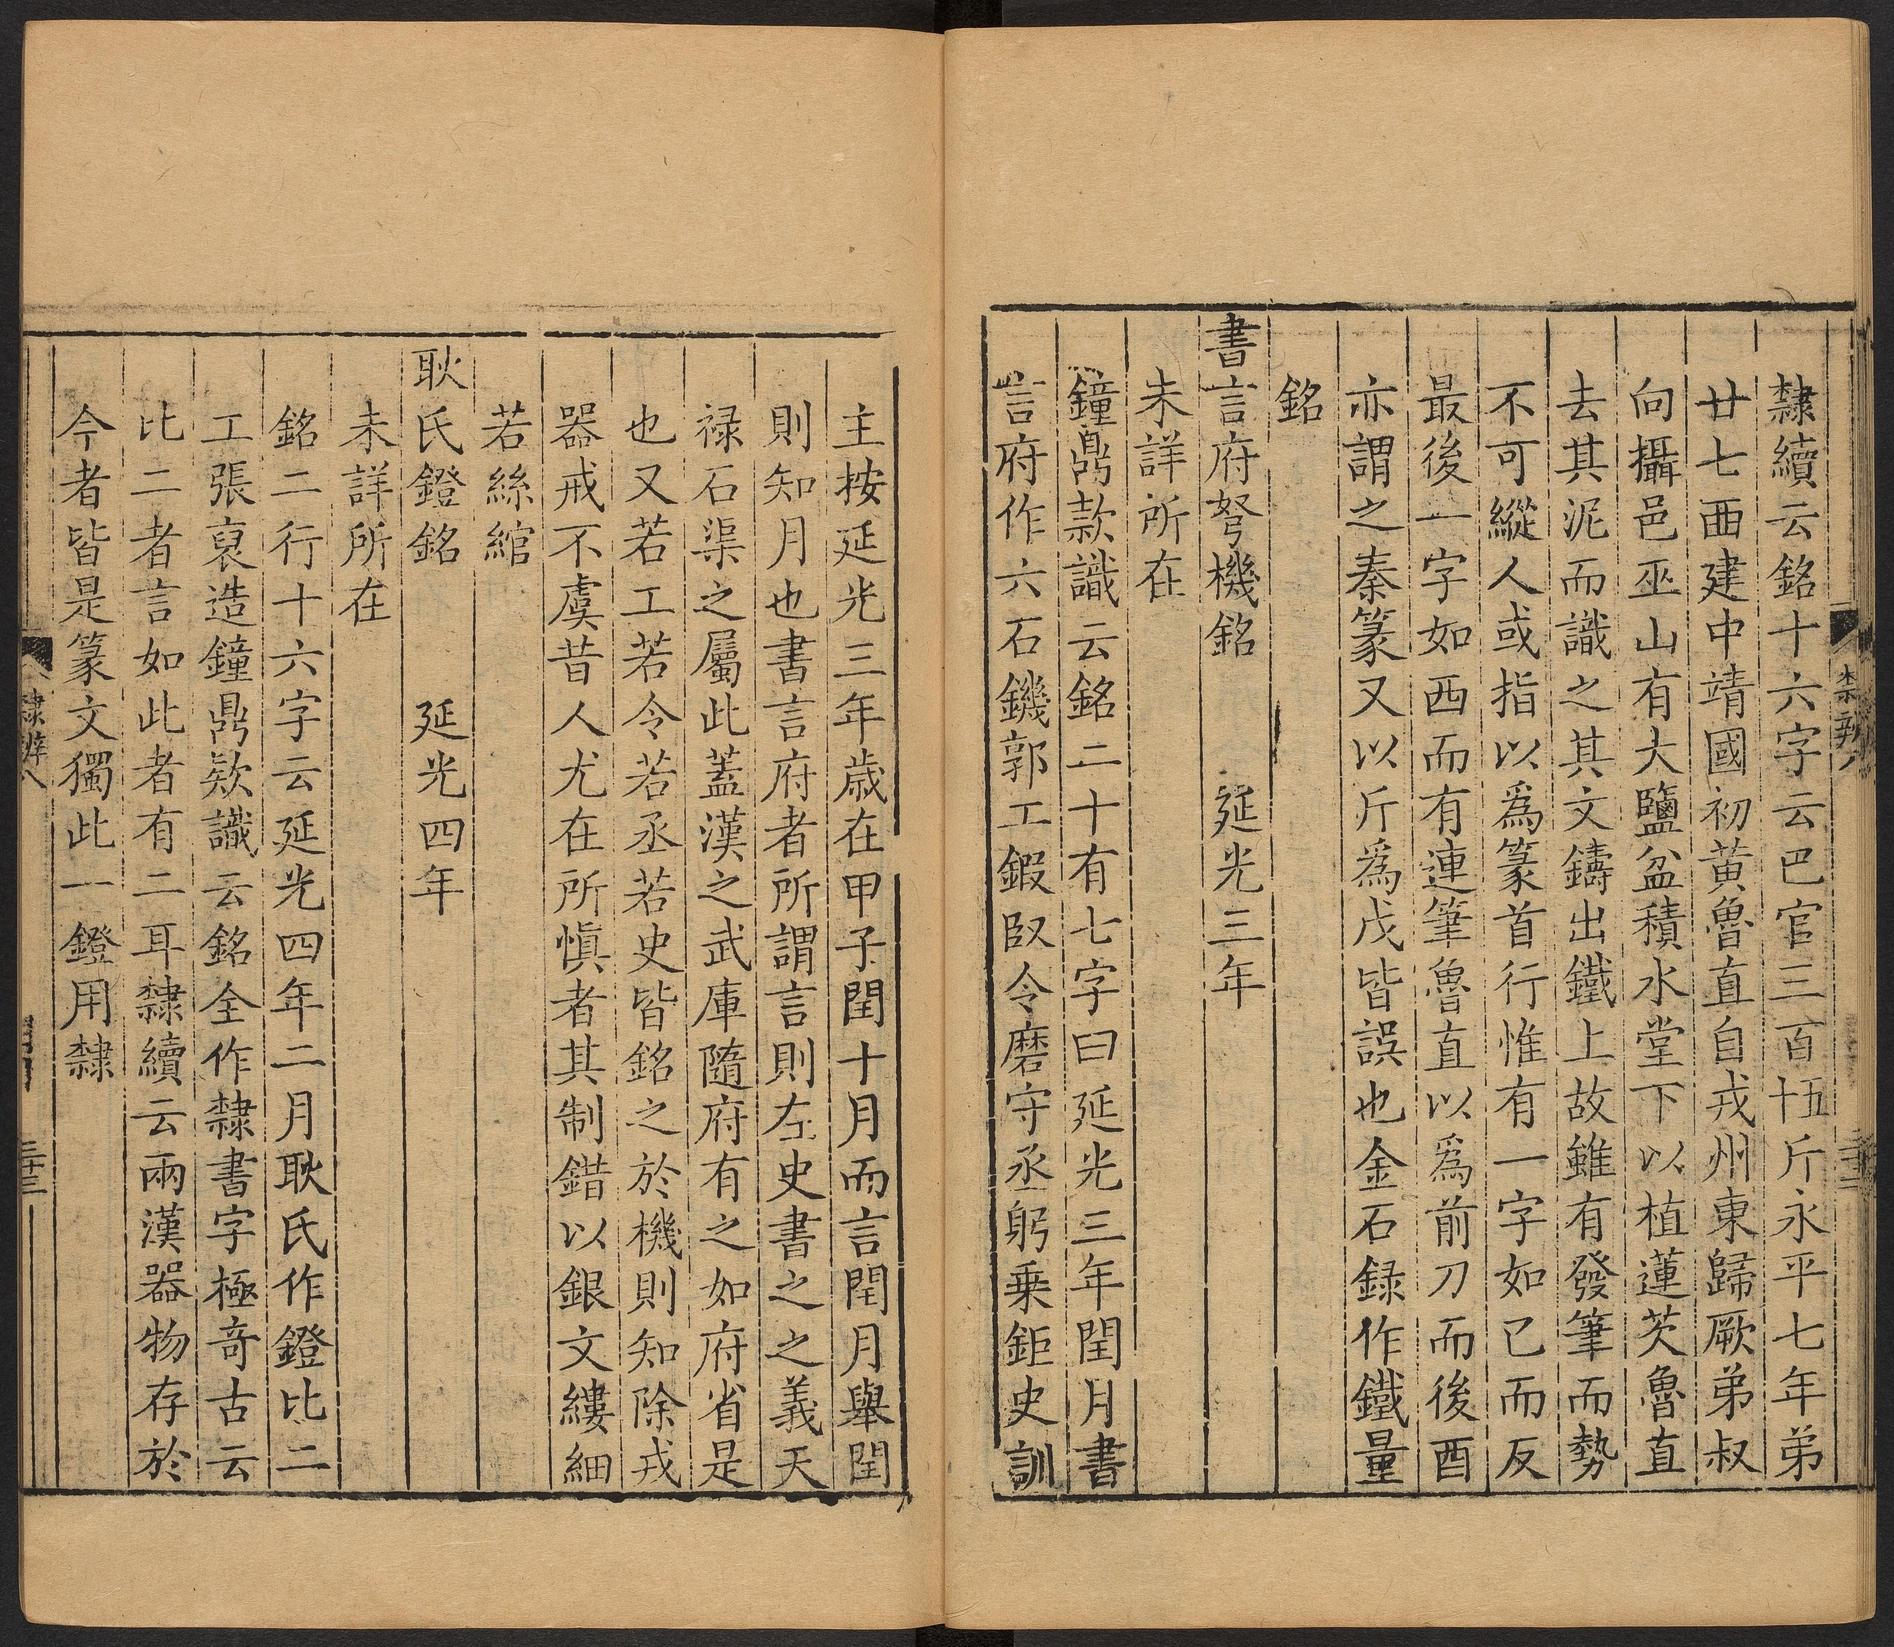 隸續云銘十六字云巴官三百五十斤永平七年弟
廿七酉建中靖國初黃魯直自戎州東歸厥弟叔
向攝邑巫山有大鹽盆積水堂下以植蓮芡魯直
去其泥而識之其文鑄出鐵上故雖有發筆而勢
不可縱人或指以爲篆首行惟有一字如已而反
最後一字如西而有連筆魯直以爲前刀而後酉
亦謂之秦篆又以斤爲戊皆誤也金石録作鐵量
銘
書言府弩機銘 延光三年
未詳所在
鐘鼎款識云銘二十有七字曰延光三年閏月書
言府作六石鐖郭工鍜臤令磨守丞躬乗鉅史訓
主按延光三年歳在甲子閏十月而言閏月舉閏
則知月也書言府者所謂言則左史書之之義天
禄石渠之屬此蓋漢之武庫隨府有之如府省是
也又若工若令若丞若史皆銘之於機則知除戎
器戒不虞昔人尤在所愼者其制錯以銀文縷細
若絲綰
耿氏鐙銘 延光四年
未詳所在
銘二行十六字云延光四年二月耿氏作鐙比二
工張裒造鐘鼎欵識云銘全作隸書字極竒古云
比二者言如此者有二耳隸續云兩漢器物存於
今者皆是篆文獨此一鐙用隸
隸辨八
三十三